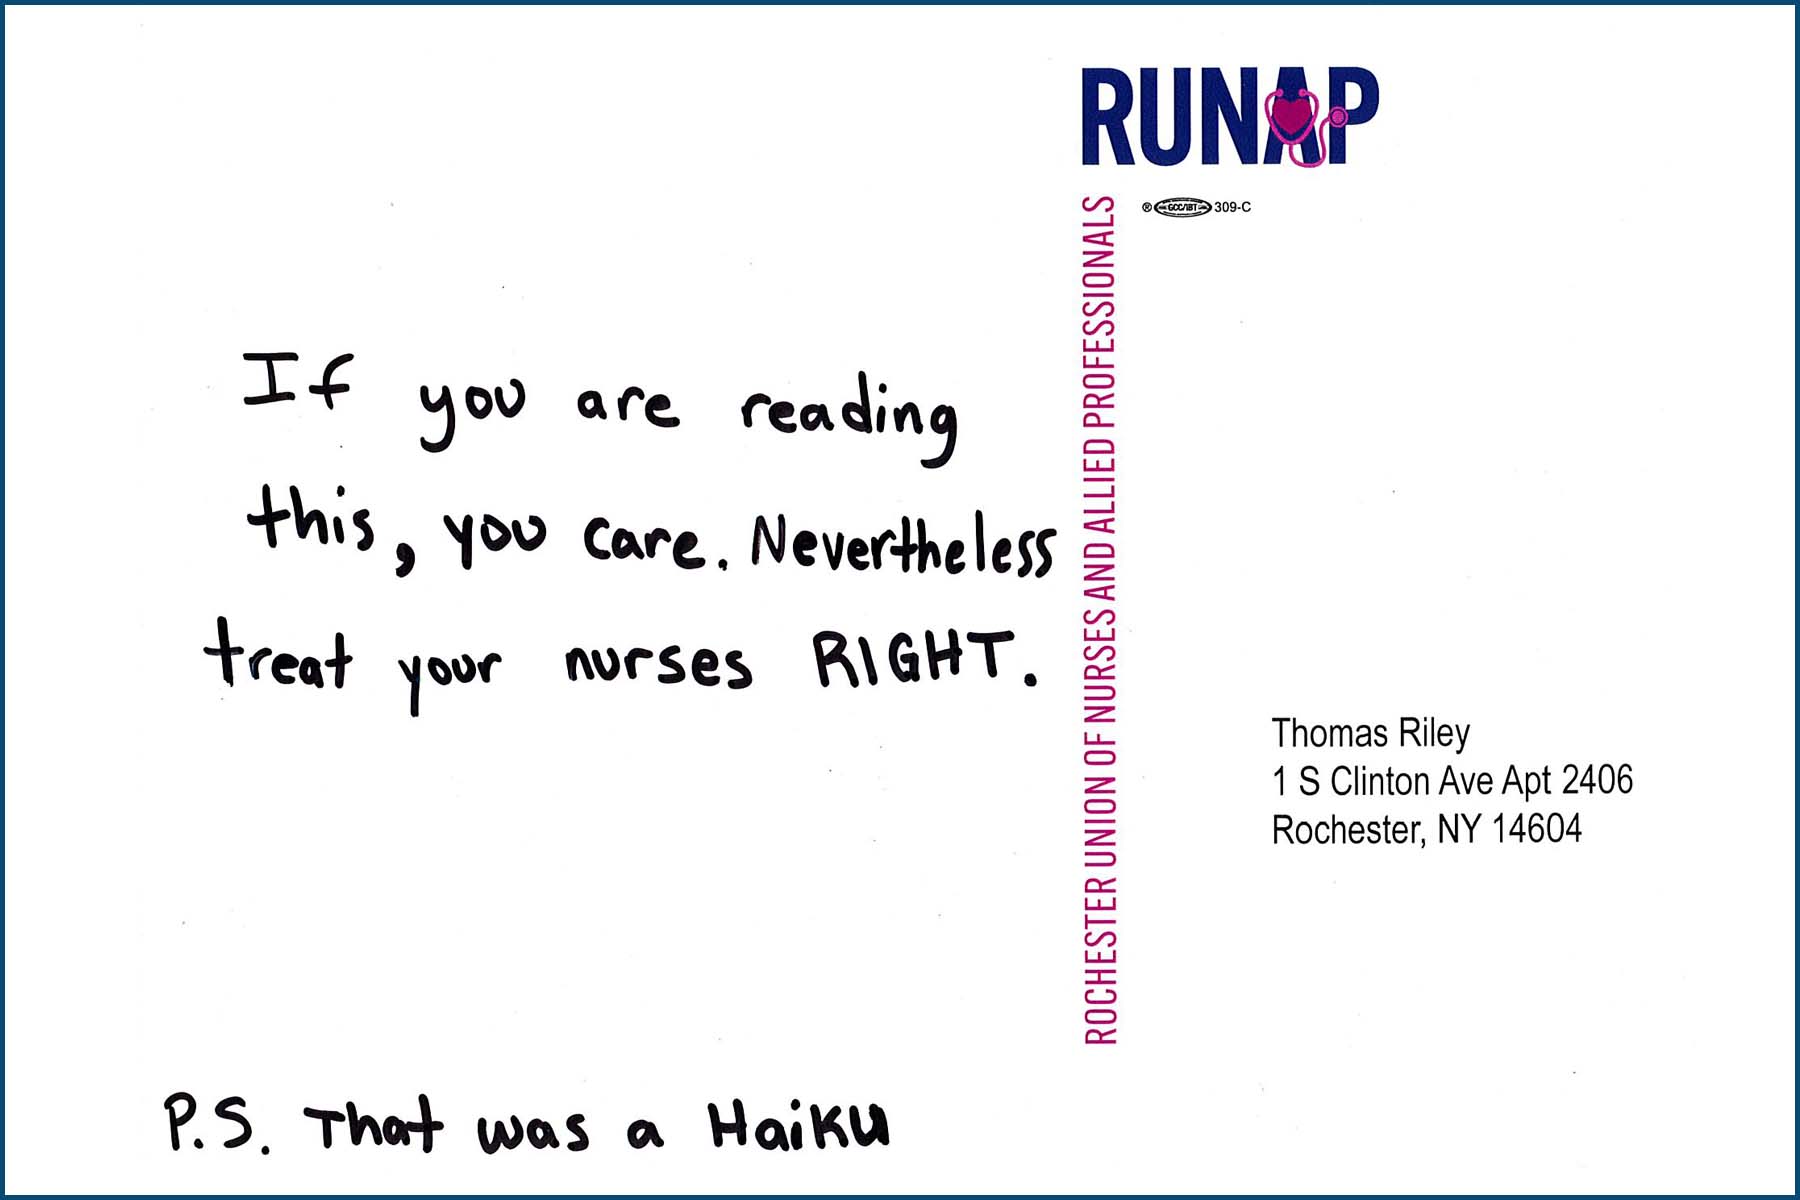 If you are reading
this, you care. Nevertheless
treat your nurses RIGHT.
P.S. That was a Haiku
RUNAP
® GCC/IBT 309-C
ROCHESTER UNION OF NURSES AND ALLIED PROFESSIONALS
Thomas Riley
1 S Clinton Ave Apt 2406
Rochester, NY 14604